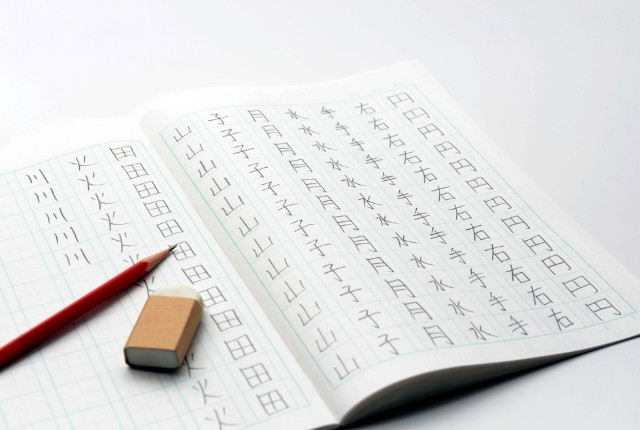 円円円円円円円円円円円円
右右右右右右右右右右右右
手手手手手手手手手手手手
水水水水水水水水水水水水
月月月月月月月月月月月月
子子子子子子子子子子子子
山山山山山山山山山山山山
田田田田田田田田田田田田
火火火火火火火火
川川川川川